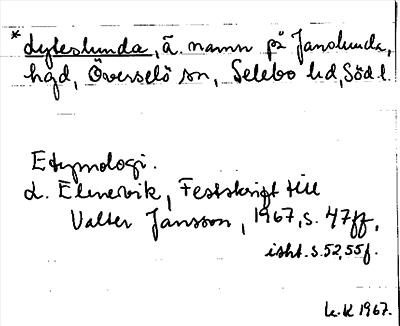 *Lyteslunda, ä. namn på Janslunda,
hgd, Överselö sn, Selebo hd, Söd l.
Etymologi.
L. Elmevik, Festskrift till
Valter Jansson, 1967, s. 47ff,
isht. s. 52, 55f.
L.K 1967.